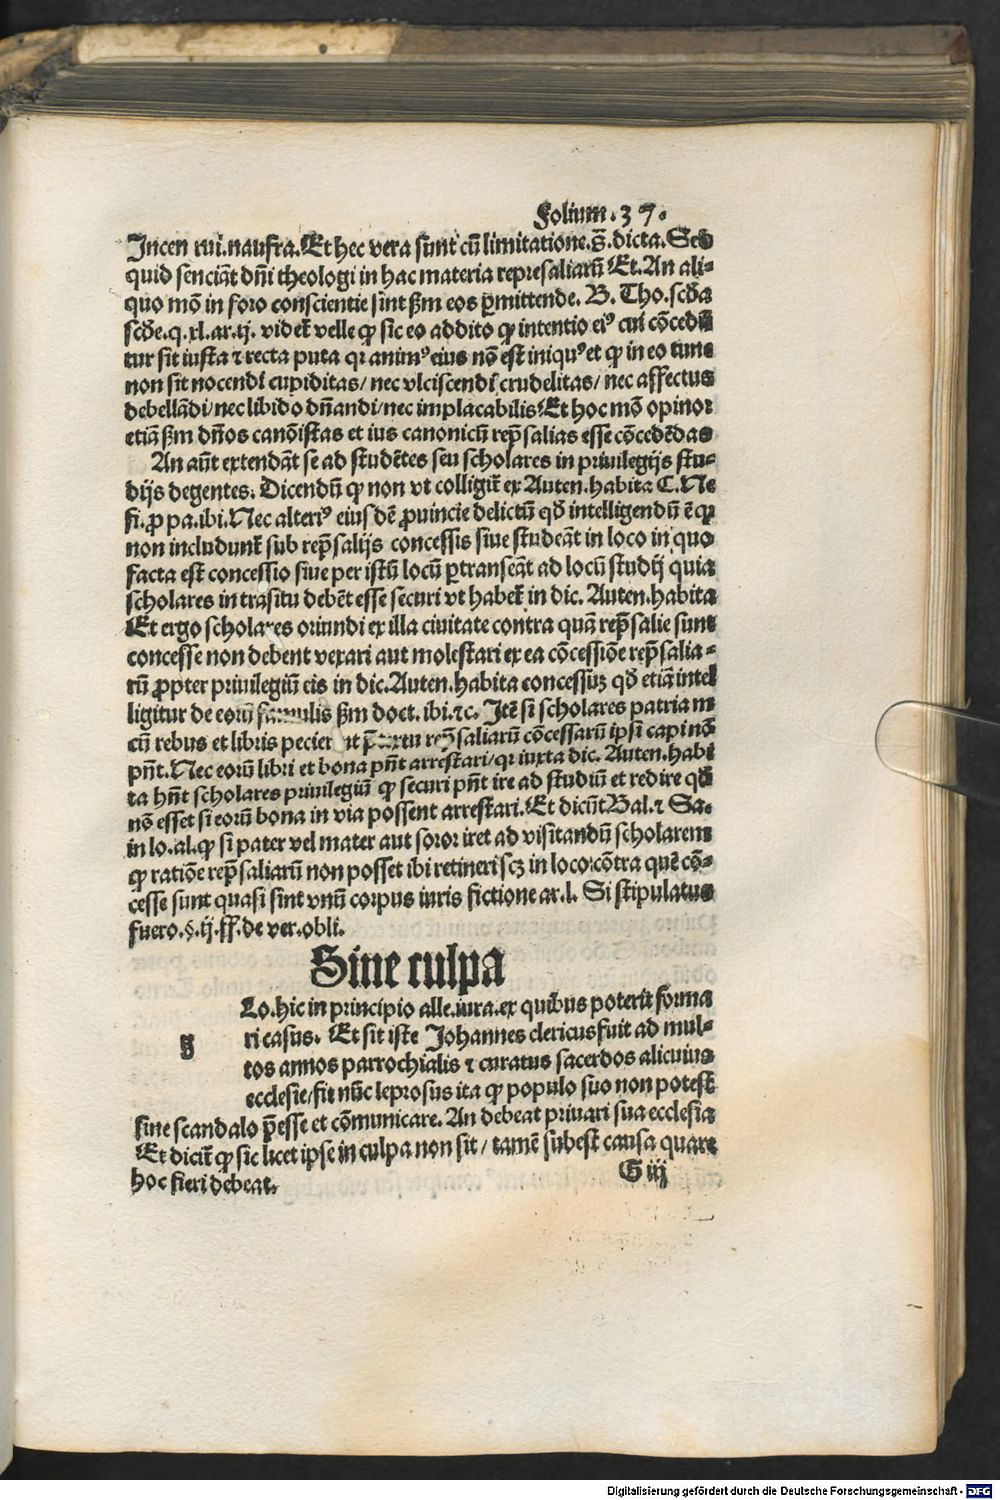 Folium .37.
Incen rui. naufra. Et hec vera sunt cū limitatione. s̄. dicta. Sed
quid senciāt dn̄i theologi in hac materia represaliarū Et. An ali⸗
quo mō in foro conscientie sint ẜm eos ꝑmittende. B. Tho. scd̄a
scd̄e. q. xl. ar. ij. videt᷑ velle ꝙ sic eo addito ꝙ intentio eiꝰ cui cōcedū
tur sit iusta ⁊ recta puta qꝛ animꝰ eius nō est iniquꝰ et ꝙ in eo tunc
non sit nocendi cupiditas/ nec vlciscendi crudelitas/ nec affectus
debellādi/ nec libido dn̄andi/ nec implacabilis Et hoc mō opinor
etiā ẜm dn̄os canōistas et ius canonicū rep̄salias esse cōcedēdas
An aūt extendāt se ad studētes seu scholares in priuilegijs stu⸗
dijs degentes. Dicendū ꝙ non vt colligit᷑ ex Auten. habita C. Ne
fi. ꝓ pa. ibi. Nec alteriꝰ eiusdē ꝓuincie delictū qd̄ intelligendū ē ꝙ
non includunt᷑ sub rep̄salijs concessis siue studeāt in loco in quo
facta est concessio siue per istū locū ꝑtranseāt ad locū studij quia
scholares in trāsitu debēt esse securi vt habet᷑ in dic. Auten. habita
Et ergo scholares oriundi ex illa ciuitate contra quā rep̄salie sunt
concesse non debent vexari aut molestari ex ea cōcessiōe rep̄salia⸗
rū ꝓpter priuilegiū eis in dic. Auten. habita concessuꝫ qd̄ etiā intel
ligitur de eorū famulis ẜm doct. ibi. ⁊c. Itē si scholares patria
cū rebus et libris rep̄saliarū cōcessarū ipsi capi nō
pn̄t. Nec eorū libri et bona pn̄t arrestari/ qꝛ iuxta dic. Auten. habi
ta hn̄t scholares priuilegiū ꝙ securi pn̄t ire ad studiū et redire qd̄
nō esset si eorū bona in via possent arrestari. Et dicūt Bal. ⁊ Sa.
in lo. al. ꝙ si pater vel mater aut soror iret ad visitandū scholarem
ꝙ ratiōe rep̄saliarū non posset ibi retineri scꝫ in loco cōtra quē cō⸗
cesse sunt quasi sint vnū corpus iuris fictione ar. l. Si stipulatus
fuero. §. ij. ff. de ver. obli.
Sine culpa
g
Lo. hic in principio alle. iura. ex quibus poterit forma
ri casus. Et sit iste Johannes clericus fuit ad mul⸗
tos annos parrochialis ⁊ curatus sacerdos alicuius
ecclesie/ fit nūc leprosus ita ꝙ populo suo non potest
sine scandalo p̄esse et cōmunicare. An debeat priuari sua ecclesia
Et dicit᷑ ꝙ sic licet ipse in culpa non sit/ tamē subest causa quare
hoc fieri debeat.
G iij
Digitalisierung gefördert durch die Deutsche Forschungsgemeinschaft - DFG